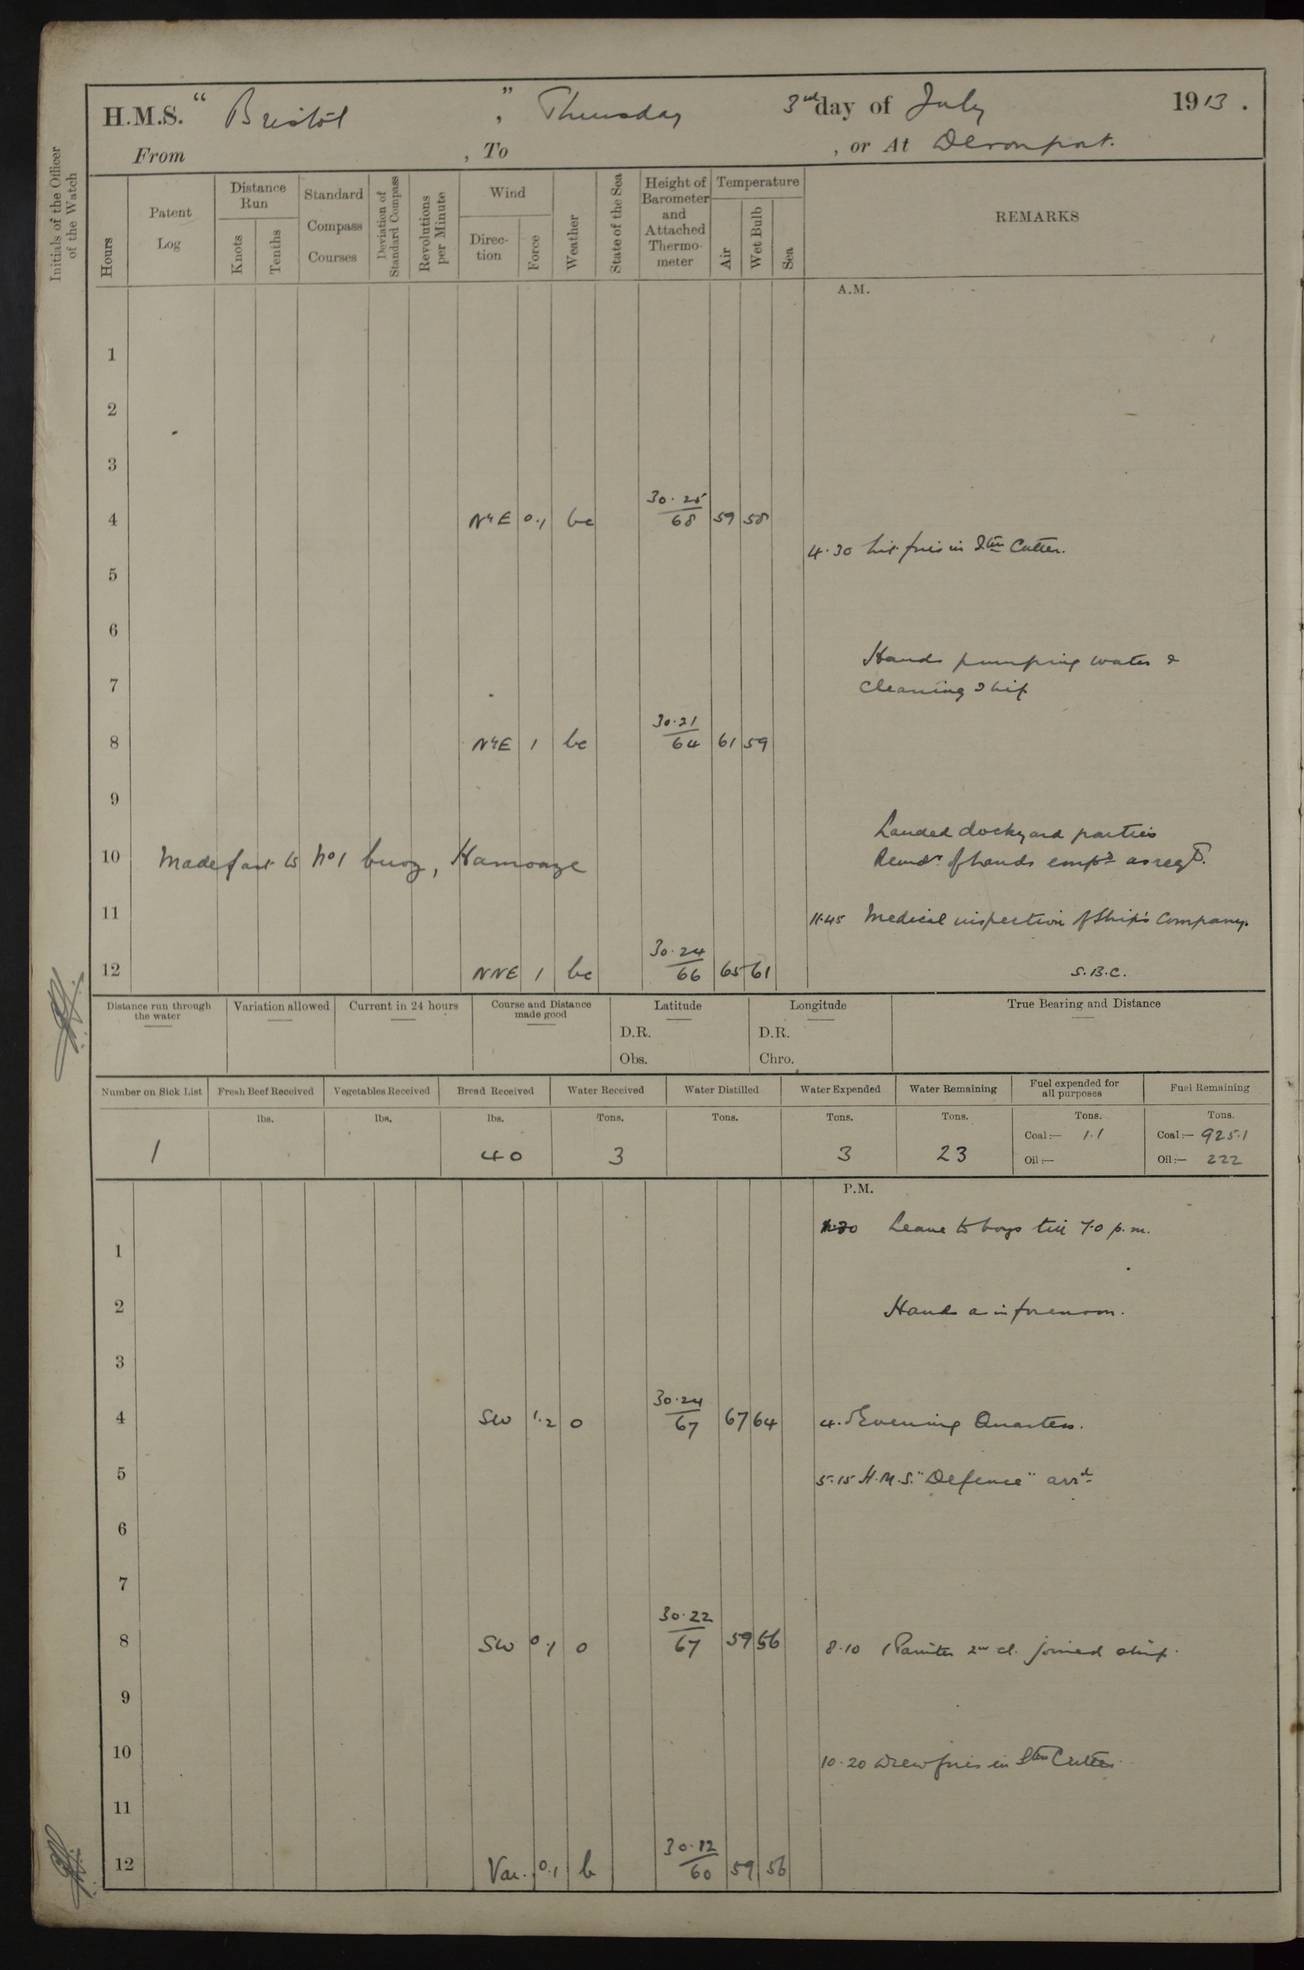 H.M.S. "Bristol", Thursday 3rd day of July 1913.
From , To , or At Devonport.
Initials of the Officer of the Watch
Hours
Patent Log
Distance Run
Knots
Tenths
Standard Compass Courses
Deviation of Standard Compass
Revolutions per Minute
Wind
Direction
Force
Weather
State of the Sea
Height of Barometer and Attached Thermometer
Temperature
Air
Wet Bulb
Sea
REMARKS
A.M.
1
2
3
4 NyE 0.1 bc 30.25/68 59 58
4.30 Lit fires in Stm Cutter.
5
6
Hands pumping water &
7 cleaning ship
8 NyE 1 bc 30.21/64 61 59
9
Landed dockyard parties
10 Made fast to No 1 buoy, Hamoaze Remdr of hands empd as reqd.
11 11.45 Medical inspection of Ship's Company.
12 NNE 1 bc 30.24/66 65 61 S.B.C.
Distance run through the water
Variation allowed
Current in 24 hours
Course and Distance made good
Latitude
D.R.
Obs.
Longitude
D.R.
Chro.
True Bearing and Distance
Number on Sick List Fresh Beef Received Vegetables Received Bread Received Water Received Water Distilled Water Expended Water Remaining Fuel expended for all purposes Fuel Remaining
lbs. lbs. lbs. Tons. Tons. Tons. Tons. Tons. Tons.
1 40 3 3 23 Coal:— 1.1 Coal:— 925.1
Oil:— Oil:— 222
P.M.
Leave to boys till 7.0 p.m.
1
2 Hands as in forenoon.
3
4 SW 1.2 0 30.24/67 67 64 4. Evening Quarters.
5 5.15 H.M.S. "Defence" arrd
6
7
8 SW 0.1 0 30.22/67 59 56 8.10 1 Painter 2nd cl. joined ship.
9
10 10.20 Drew fires in Stm Cutter
11
12 Var. 0.1 b 30.12/60 59 56